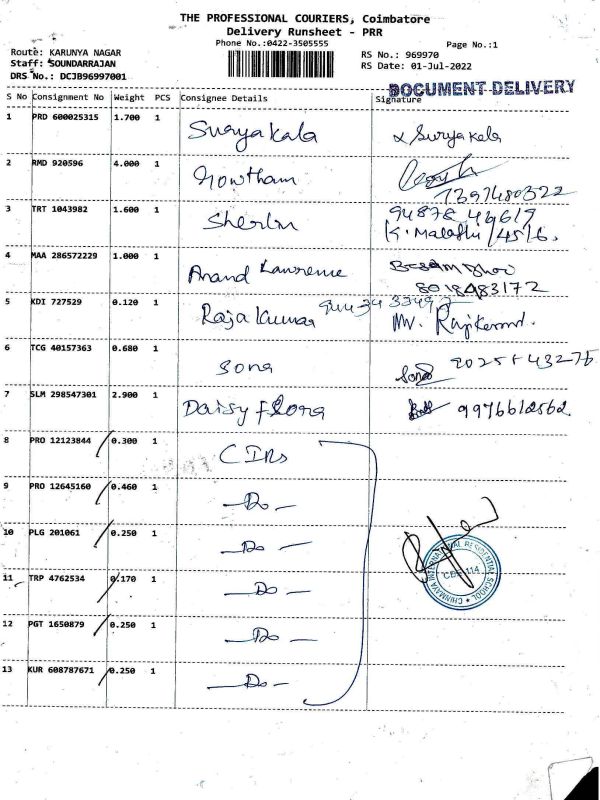 THE PROFESSIONAL COURIERS, Coimbatore
Delivery Runsheet - PRR
Phone No.:0422-3505555
Page No.:1
Route: KARUNYA NAGAR
RS No.: 969970
Staff: SOUNDARRAJAN
RS Date: 01-Jul-2022
DRS No.: DCJB96997001
DOCUMENT DELIVERY
S No Consignment No Weight PCS Consignee Details Signature
1 PRD 600025315 1.700 1 Suryakala x Suryakala
2 RMD 920596 4.000 1 Gowtham
7397480322
3 TRT 1043982 1.600 1 Sherlin
K. Malathi /4516.
4 MAA 286572229 1.000 1 Anand Lawrence
8018483172
5 KDI 727529 0.120 1 Raja Kumar Mr. Rajkumar.
6 TCG 40157363 0.680 1 Sona Sona
7 SLM 298547301 2.900 1 Daisy Flora
8 PRO 12123844 0.300 1 CIRS
9 PRO 12645160 0.460 1 - Do -
10 PLG 201061 0.250 1 - Do -
11 TRP 4762534 0.170 1 - Do -
12 PGT 1650879 0.250 1 - Do -
13 KUR 608787671 0.250 1 - Do -
CHINMAYA INTERNATIONAL RESIDENTIAL SCHOOL
CBE-114